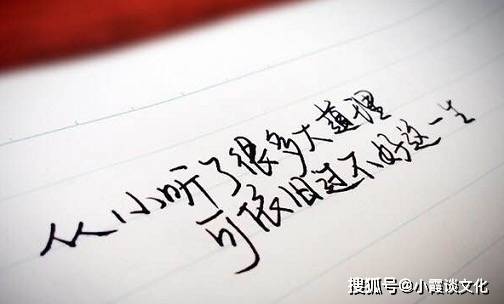 从小听了很多大道理
可依旧过不好这一生
搜狐号@小霞谈文化